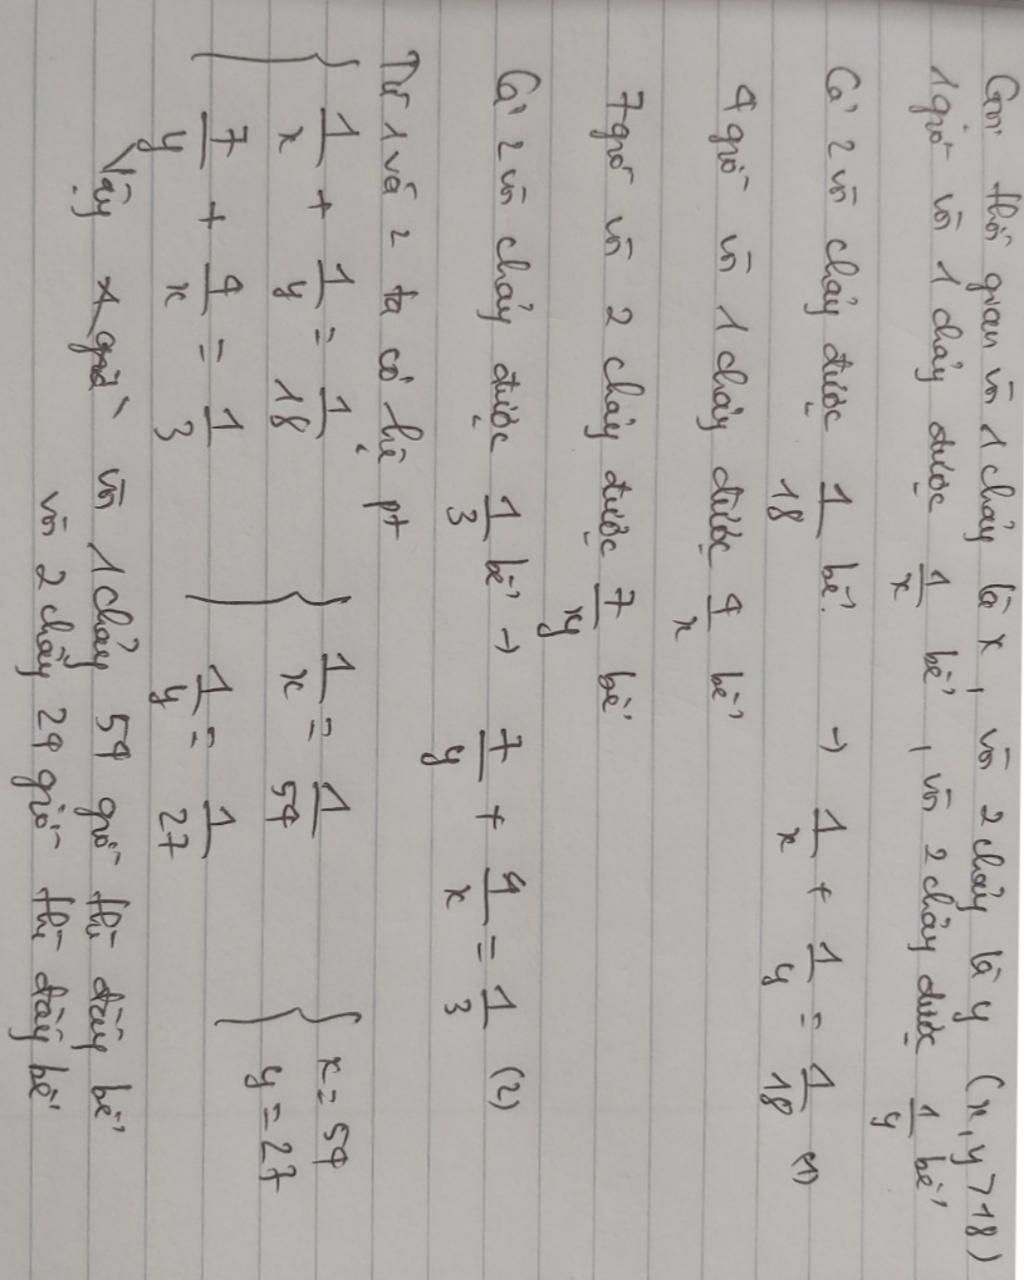 Gọi thời gian vòi 1 chảy là x, vòi 2 chảy là y (x, y > 18)
1 giờ vòi 1 chảy được 1/x bể, vòi 2 chảy được 1/y bể
Cả 2 vòi chảy được 1/18 bể. → 1/x + 1/y = 1/18 (1)
4 giờ vòi 1 chảy được 4/x bể
7 giờ vòi 2 chảy được 7/y bể
Cả 2 vòi chảy được 1/3 bể → 7/y + 4/x = 1/3 (2)
Từ 1 và 2 ta có hệ pt
{ 1/x + 1/y = 1/18 { 1/x = 1/54 { x = 54
7/y + 4/x = 1/3 1/y = 1/27 y = 27
Vậy vòi 1 chảy 54 giờ thì đầy bể
vòi 2 chảy 24 giờ thì đầy bể